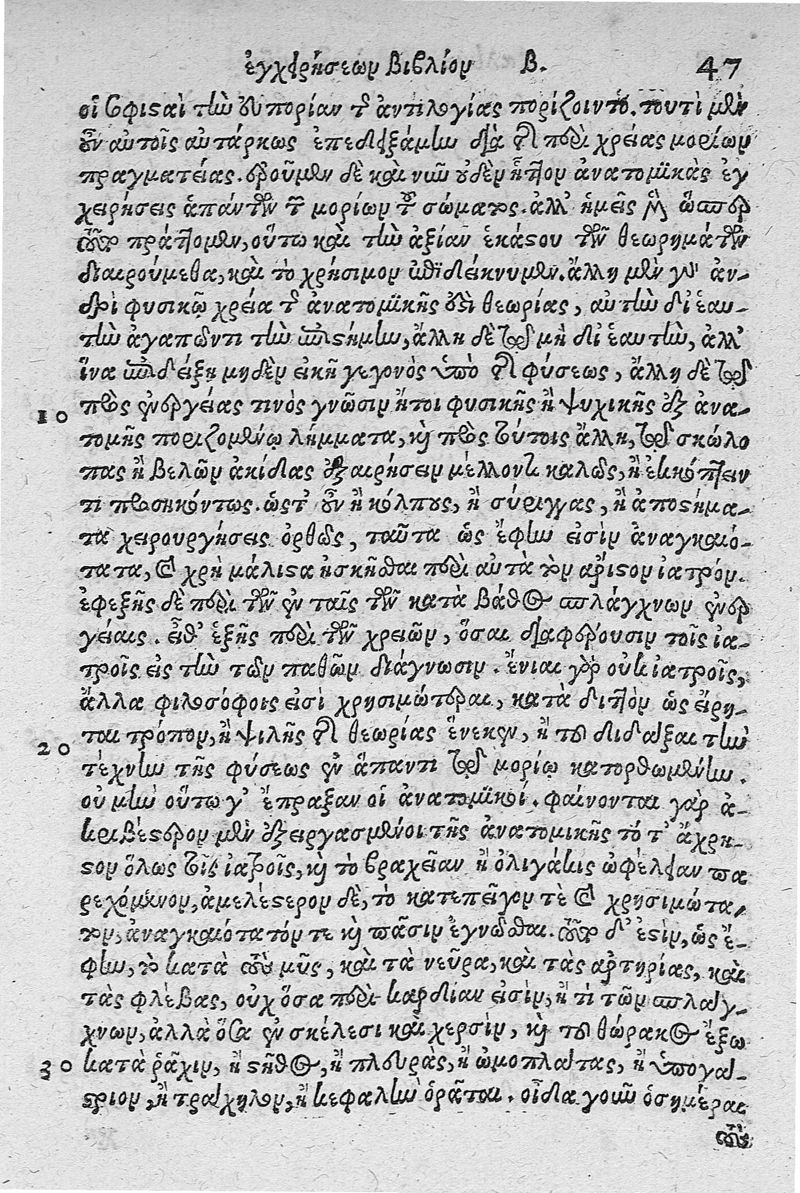 ἐγχειρήσεων βιβλίον Β. 47
οἱ σοφισταὶ τὴν εὐπορίαν τῆς ἀντιλογίας πορίζοιντο. τουτὶ μὲν
οὖν αὐτοῖς αὐτάρκως ἐπεδειξάμην διὰ τῆς περὶ χρείας μορίων
πραγματείας. ἐροῦμεν δὲ καὶ νῦν οὐδὲν ἧττον ἀνατομικὰς ἐγ
χειρήσεις ἁπάντων τῶν μορίων τοῦ σώματος. ἀλλ' ἡμεῖς μὲν ὥσπερ
οὖν πράττομεν, οὕτω καὶ τὴν ἀξίαν ἑκάστου τῶν θεωρημάτων
διαιρούμεθα, καὶ τὸ χρήσιμον ἐπιδείκνυμεν. ἄλλη μὲν γὰρ ἀν-
δρὶ φυσικῷ χρεία τῆς ἀνατομικῆς ἐστι θεωρίας, αὐτὴν δι' ἑαυ-
τὴν ἀγαπῶντι τὴν ἐπιστήμην, ἄλλη δὲ τῷ μὴ δι' ἑαυτὴν, ἀλλ'
ἵνα ἐπιδείξῃ μηδὲν εἰκῆ γεγονὸς ὑπὸ τῆς φύσεως, ἄλλη δὲ τῷ
10 πρὸς ἐνεργείας τινὸς γνῶσιν ἤτοι φυσικῆς ἢ ψυχικῆς ἐξ ἀνα-
τομῆς ποριζομένῳ λήμματα, καὶ πρὸς τούτοις ἄλλη, τῷ σκώλο
πας ἢ βελῶν ἀκίδας ἐξαιρήσειν μέλλοντι καλῶς, ἢ ἐκκόπτειν
τι προσηκόντως. ὥστ' οὖν ἢ κόλπους, ἢ σύριγγας, ἢ ἀποστήμα-
τα χειρουργήσεις ὀρθῶς, ταῦτα ὡς ἔφην εἰσὶν ἀναγκαιό-
τατα, καὶ χρὴ μάλιστα ἠσκῆσθαι περὶ αὐτὰ τὸν ἄριστον ἰατρόν.
ἐφεξῆς δὲ περὶ τῶν ἐν ταῖς τῶν κατὰ βάθος σπλάγχνων ἐνερ
γείαις. εἶθ' ἑξῆς περὶ τῶν χρειῶν, ὅσαι διαφέρουσιν τοῖς ἰα-
τροῖς εἰς τὴν τῶν παθῶν διάγνωσιν. ἔνιαι γὰρ οὐκ ἰατροῖς,
ἄλλα φιλοσόφοις εἰσὶ χρησιμώτεραι, κατὰ διττὸν ὡς εἴρη-
20 ται τρόπον, ἢ ψιλῆς τῆς θεωρίας ἕνεκεν, ἢ τοῦ διδάξαι τὴν
τέχνην τῆς φύσεως ἐν ἅπαντι τῷ μορίῳ κατορθωμένην.
οὐ μὴν οὕτω γ' ἔπραξαν οἱ ἀνατομικοί. φαίνονται γὰρ ἀ-
κριβέστερον μὲν ἐξειργασμένοι τῆς ἀνατομικῆς τό τ' ἄχρη-
στον ὅλως τοῖς ἰατροῖς, καὶ τὸ βραχεῖαν ἢ ὀλιγάκις ὠφέλειαν πα
ρεχόμενον, ἀμελέστερον δὲ, τὸ κατεπεῖγον τὲ καὶ χρησιμώτα-
τον, ἀναγκαιότατόν τε καὶ πᾶσιν ἐγνῶσθαι. οὖν δ' ἐστὶν, ὡς ἔ-
φην, τὸ κατὰ τοὺς μῦς, καὶ τὰ νεῦρα, καὶ τὰς ἀρτηρίας, καὶ
τὰς φλέβας, οὐχ ὅσα περὶ καρδίαν εἰσὶν, ἤ τι τῶν σπλάγ-
χνων, ἀλλὰ ὅσα ἐν σκέλεσι καὶ χερσὶν, καὶ τοῦ θώρακος ἔξω
30 κατὰ ῥάχιν, ἢ στῆθος, ἢ πλευρὰς, ἢ ὠμοπλάτας, ἢ ὑπογά-
στριον, ἢ τράχηλον, ἢ κεφαλὴν ὁρᾶται. οἶδα γοῦν ὁσημέραι
τοὺς